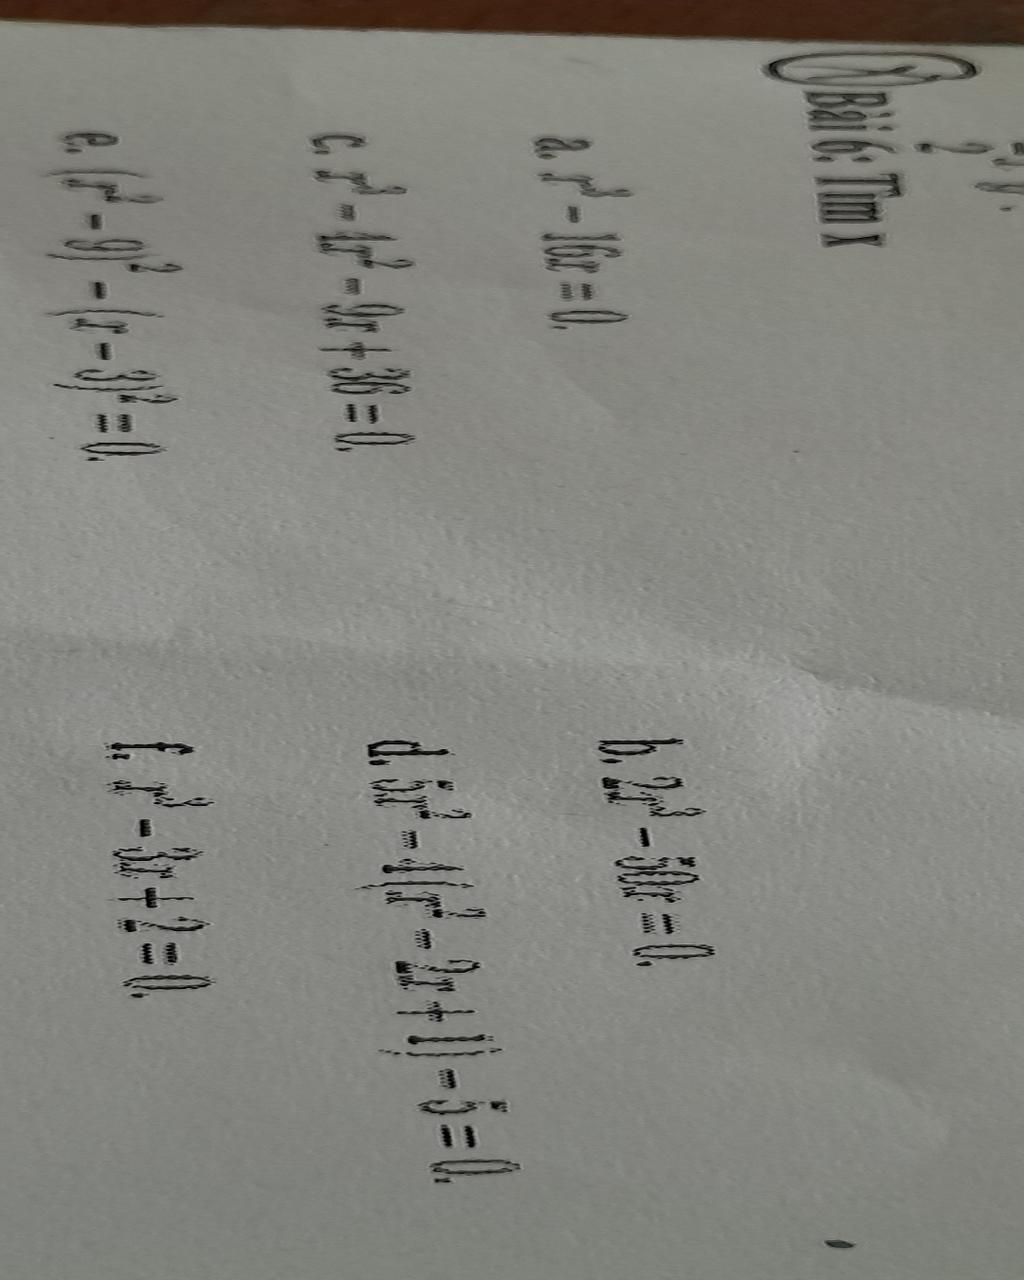 Bài 6: Tìm x
a. x³ − 16x = 0.
b. 2x³ − 50x = 0.
c. x³ − 4x² − 9x + 36 = 0.
d. 5x² − 4(x² − 2x + 1) − 5 = 0.
e. (x² − 9)² − (x − 3)² = 0.
f. x³ − 3x + 2 = 0.